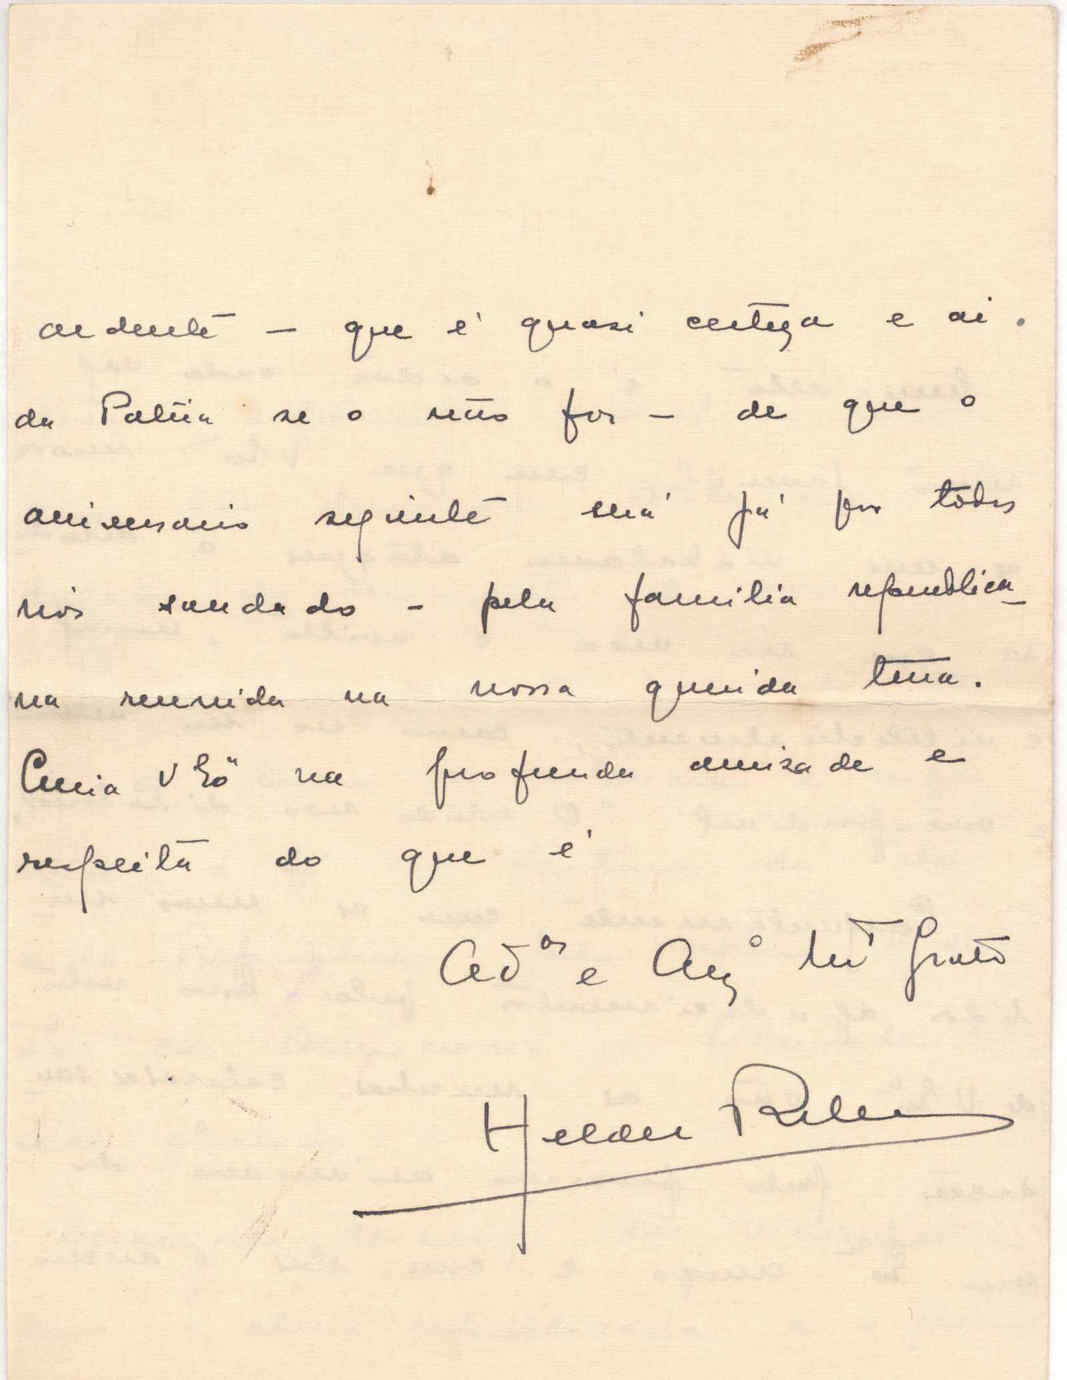 ardente — que é quasi certeza e ai
da Patria se o não for — de que o
aniversario seguinte será já por todos
nós saudado – pela familia republica-
na reunida na nossa querida terra.
Creia V Exª na profunda amizade e
respeito do que é
Adºr e Amgº Mtº Grato
Helder Ribeiro